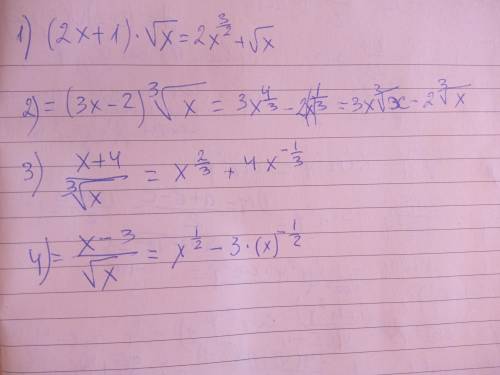 1) (2x+1)·√x = 2x^(3/2) + √x
2) = (3x-2) ∛x = 3x^(4/3) - 2x^(1/3) = 3x∛x - 2∛x
3) (x+4)/∛x = x^(2/3) + 4x^(-1/3)
4) = (x-3)/√x = x^(1/2) - 3·(x)^(-1/2)